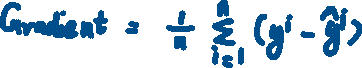 Gradient = 1/n Σ_{i=1}^{n} (y^i - ŷ^i)